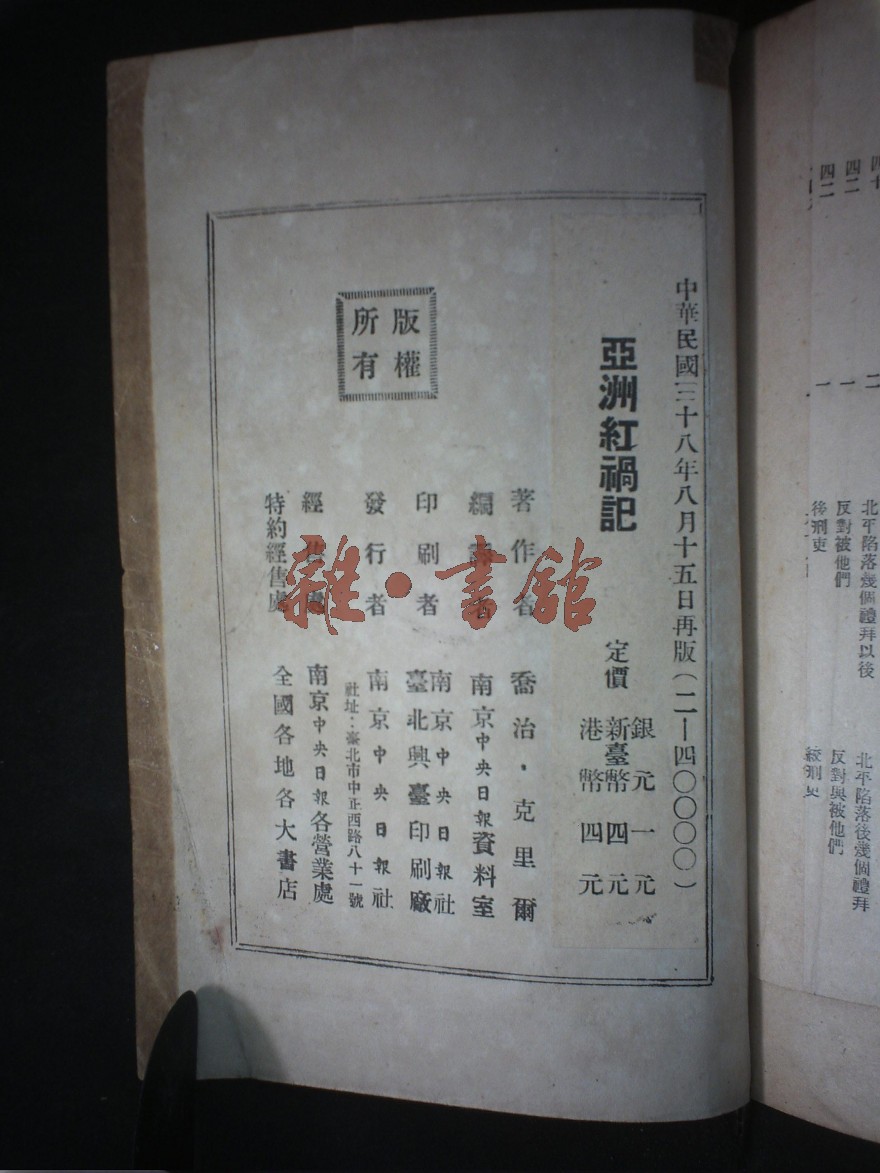 中華民國三十八年八月十五日再版（二—四〇〇〇〇）
亞洲紅禍記
定價
銀元一元
新臺幣四元
港幣四元
著作者 喬治・克里爾
編譯者 南京中央日報資料室
印刷者 南京中央日報社
臺北興臺印刷廠
發行者 南京中央日報社
社址：臺北市中正西路八十一號
經售處 南京中央日報各營業處
特約經售處 全國各地各大書店
版權所有
雜・書館
四十
四二
四二
二
一
一
北平陷落幾個禮拜以後
反對被他們
後刑吏
北平陷落後幾個禮拜
反對與被他們